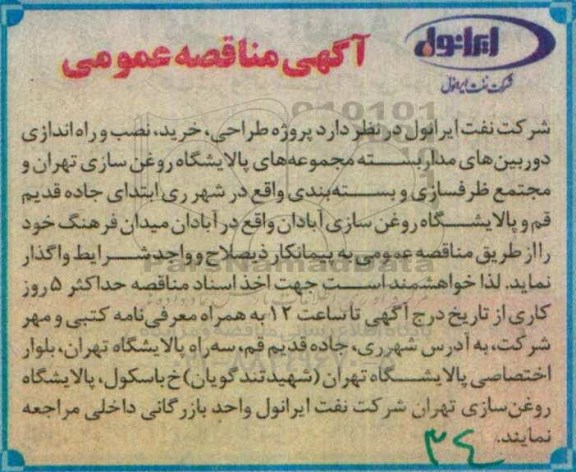 ایرانول
شرکت نفت ایرانول
آگهی مناقصه عمومی
شرکت نفت ایرانول در نظر دارد پروژه طراحی، خرید، نصب و راه اندازی
دوربین های مدار بسته مجموعه های پالایشگاه روغن سازی تهران و
مجتمع ظرفسازی و بسته بندی واقع در شهر ری ابتدای جاده قدیم
قم و پالایشگاه روغن سازی آبادان واقع در آبادان میدان فرهنگ خود
را از طریق مناقصه عمومی به پیمانکار ذیصلاح و واجد شرایط واگذار
نماید. لذا خواهشمند است جهت اخذ اسناد مناقصه حداکثر ۵ روز
کاری از تاریخ درج آگهی تا ساعت ۱۲ به همراه معرفی نامه کتبی و مهر
شرکت، به آدرس شهرری، جاده قدیم قم، سه راه پالایشگاه تهران، بلوار
اختصاصی پالایشگاه تهران (شهید تندگویان) خ باسکول، پالایشگاه
روغن سازی تهران شرکت نفت ایرانول واحد بازرگانی داخلی مراجعه
نمایند.
۳۴
ParsNamadData